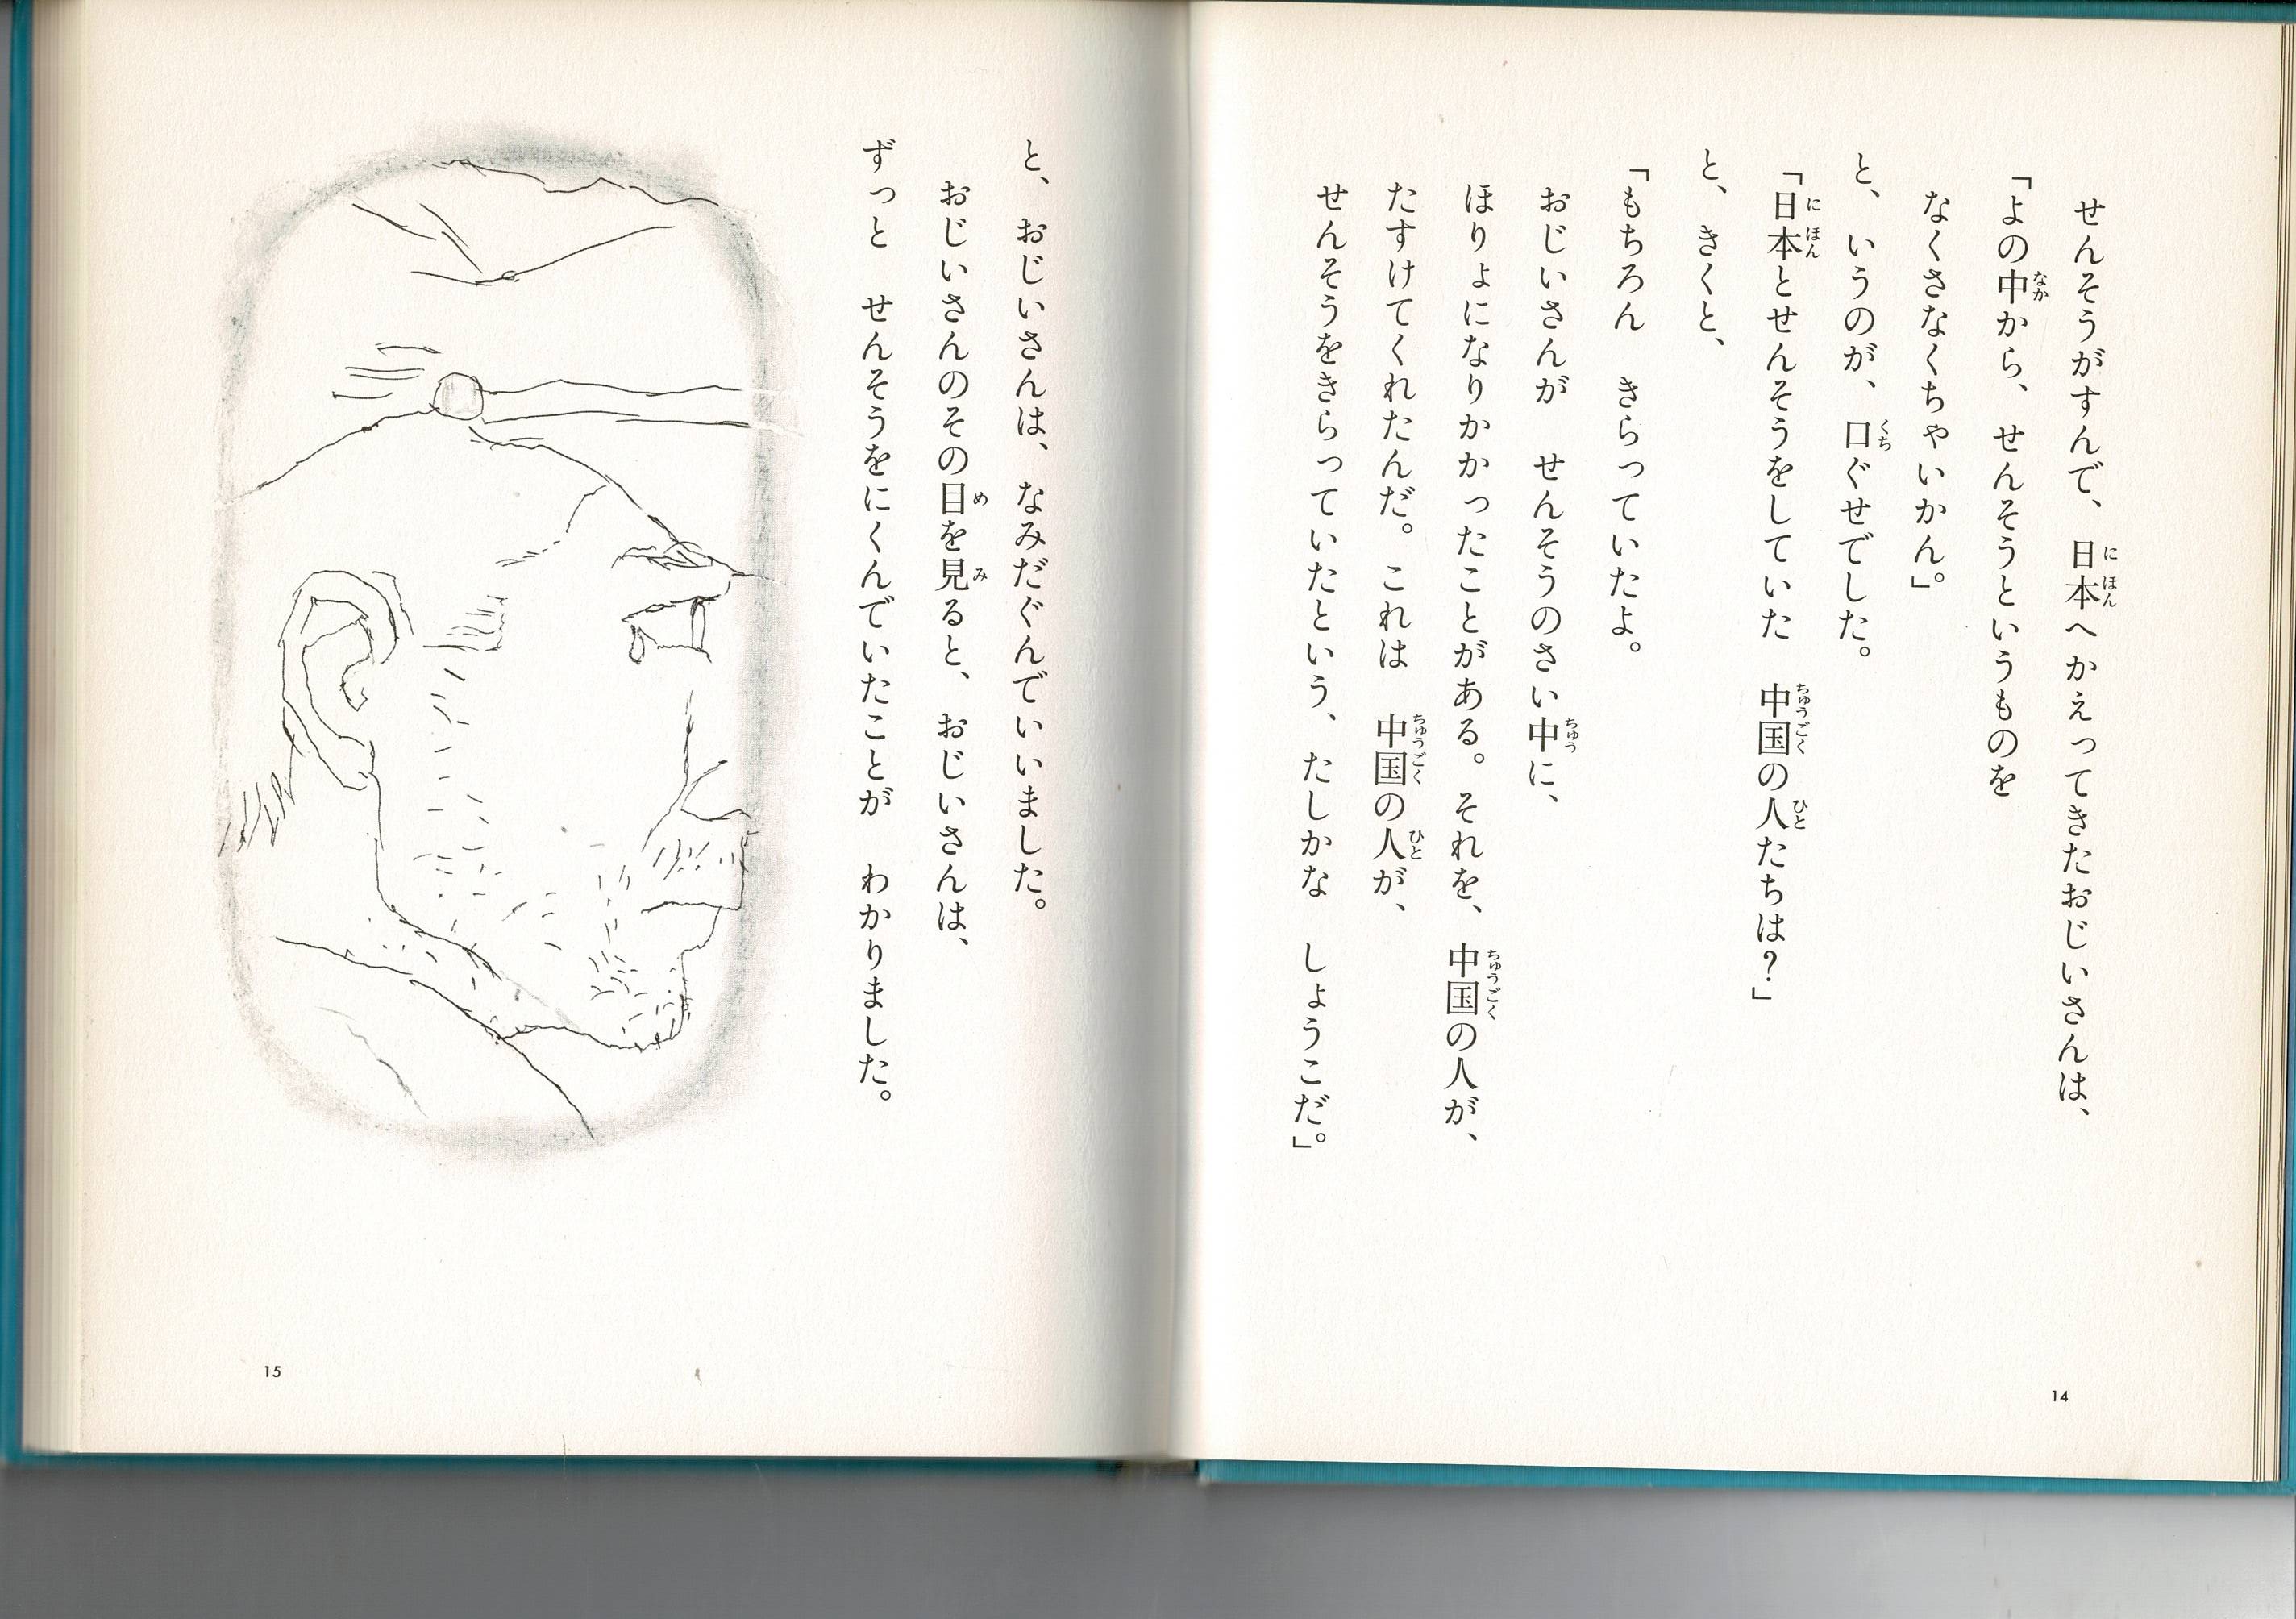 せんそうがすんで、日本へかえってきたおじいさんは、
「よの中から、せんそうというものを
なくさなくちゃいかん」。
と、いうのが、口ぐせでした。
「日本とせんそうをしていた　中国の人たちは？」
と、きくと、
「もちろん　きらっていたよ。
おじいさんが　せんそうのさい中に、
ほりょになりかかったことがある。それを、中国の人が、
たすけてくれたんだ。これは　中国の人が、
せんそうをきらっていたという、たしかな　しょうこだ」。
14
と、おじいさんは、なみだぐんでいいました。
おじいさんのその目を見ると、おじいさんは、
ずっと　せんそうをにくんでいたことが　わかりました。
15